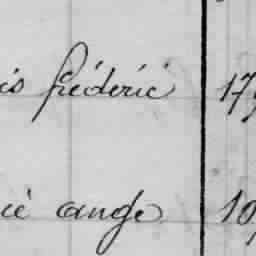 is frédéric 17
cé ange 10